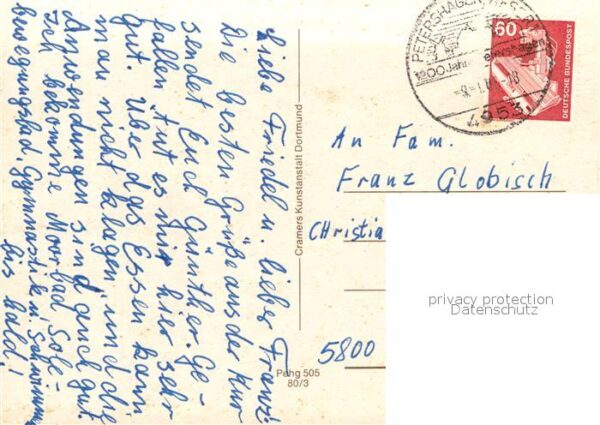 Liebe Friedel u. lieber Franz!
Die besten Grüße aus der Kur
sendet Euch Günther. Ge-
fallen tut es mir hier sehr
gut. Über das Essen kann
man nicht klagen, und die
Anwendungen sind auch gut.
Ich bekomme Moorbad Sole-
bewegungsbad, Gymnastik u. Schwimmen
bis bald!
Cramers Kunstanstalt Dortmund
Pehg 505
80/3
PETERSHAGEN, WESER
Petershagen
4953
60
DEUTSCHE BUNDESPOST
An Fam.
Franz Globisch
CHristia
5800
privacy protection
Datenschutz